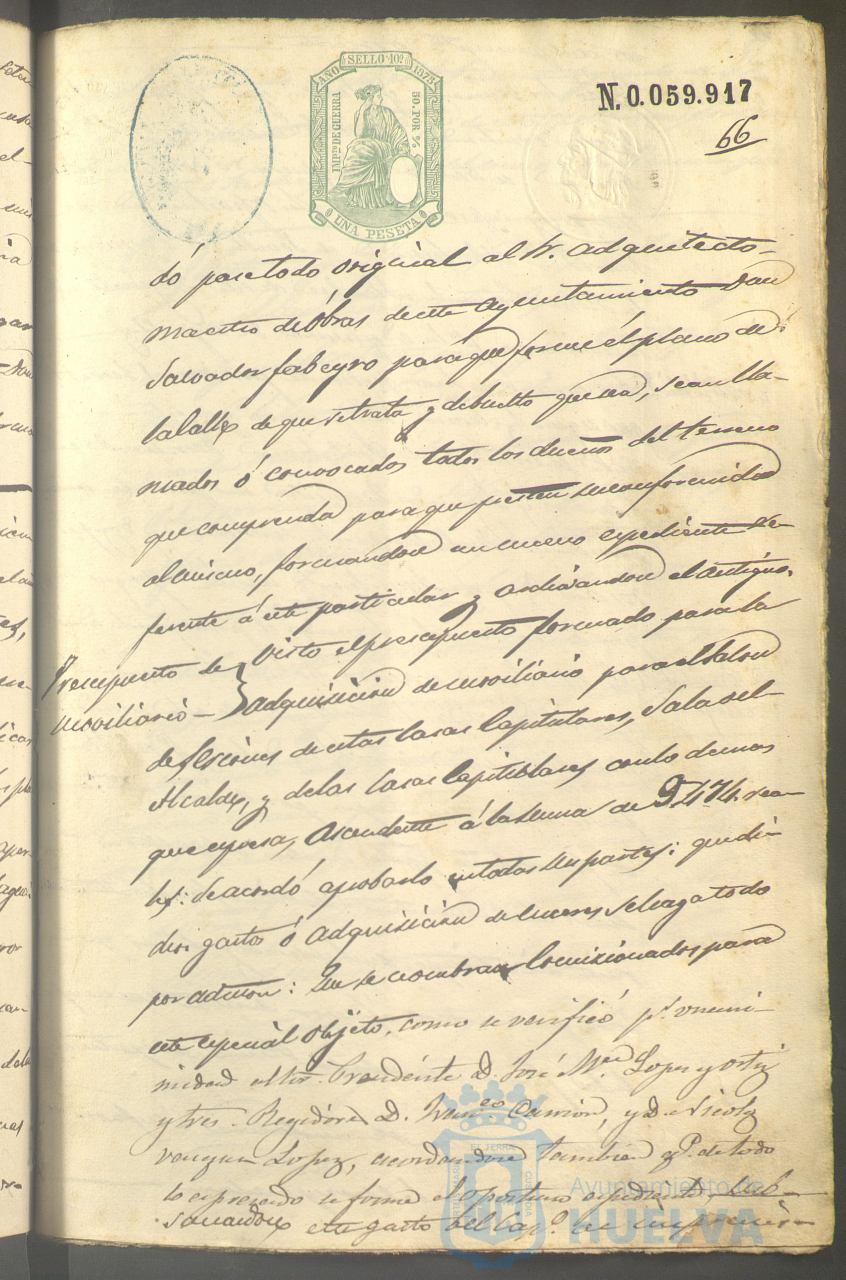 AÑO SELLO 10º 1875
IMPTO DE GUERRA
50. POR %
UNA PESETA
N.0.059.917
66
dó pase todo original al Sr. adquitecto
maestro de Obras de este Ayuntamiento Don
Salvador para que forme el plano de
la calle de que se trata y debuelto que sea, sean lla-
mados ó convocados todos los dueños del terreno
que comprenda para que presten su conformidad
al mismo, formandose un nuevo expediente re-
ferente á este particular y archivandose el antiguo.
Presupuesto de
moviliario —
Visto el presupuesto formado para la
adquisicion de moviliario para el Salon
de Sesiones de estas Casas Capitulares, Sala del
Alcalde, y de las Casas Capitulares con lo demas
que espresa, Ascendente á la Suma de 9.474. rea-
les: Se acordó aprobarlo en todas sus partes: que di-
chos gastos ó adquisicion de enseres se haga todo
por admon: Que se nombran Comisionados para
este especial objeto, como se verificó pr. unani-
midad al Sor. Presidente D. José Ma. Lopez y Ortiz
y tres Regidores D. Franco. Carrion, y D. Nicolas
Vazquez Lopez, acordandose tambien q. de todo
lo expresado se forme el oportuno expediente,
este gasto del Capo. de imprevis-
Ayuntamiento de
HUELVA